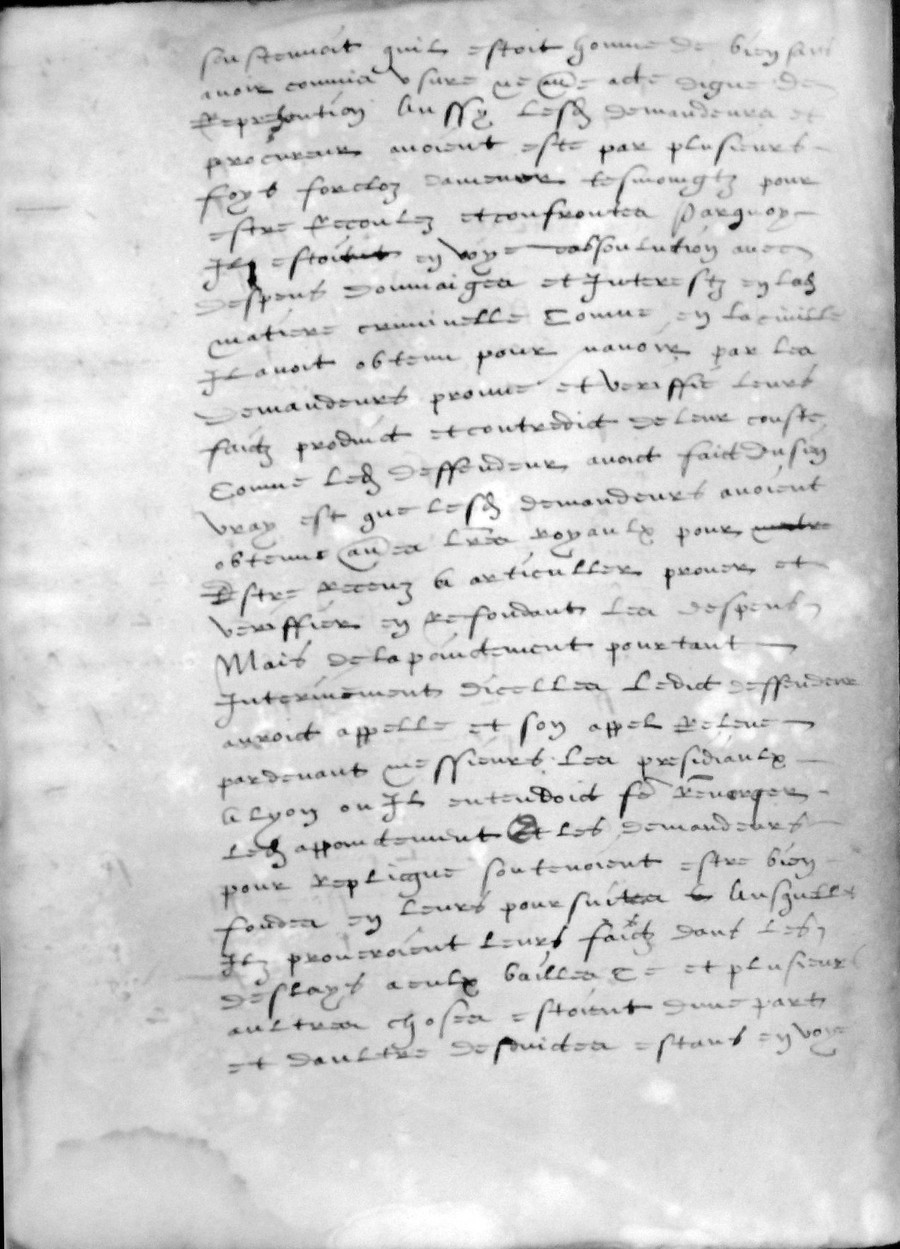 soustenoit quil estoit homme de bien sans
avoir commis usure ne aue acte digne de
Reprehention Aussy lesd demandeurs et
procureur avoient este par plusieurs
foys forcloz damener tesmoingtz pour
estre Recoulez et confrontes Parquoy
Il estoit en voye dabsoulution avec
despens dommaiges et Interestz en lad
matiere criminelle Comme en la civille
Il avoit obtenu pour navoir par les
demandeurs prouve et veriffie leurs
faictz produict et contredict de leur couste
Comme led deffendeur avoict faict Du sien
vray est que lesd demandeurs avoient
obtenu aues lres royaulx pour
Estre Receuz a articuller prouver et
veriffier en Refondant les despens
Mais de lapoinctement pourtant
Interinement dicelles Ledict deffendeur
auroict appelle et son appel Releve
pardevant messieurs les presidiaulx
A lyon ou Il entendoict
led appoinctement Et les demandeurs
pour Replicque soutenoient estre bien
fondes en leurs poursuites Ausquelles
Ilz proveroient leurs faictz dans les
deslays a eulx bailles Ce et plusieurs
aultres choses estoient dune part
et daultre desduictes estans en voye